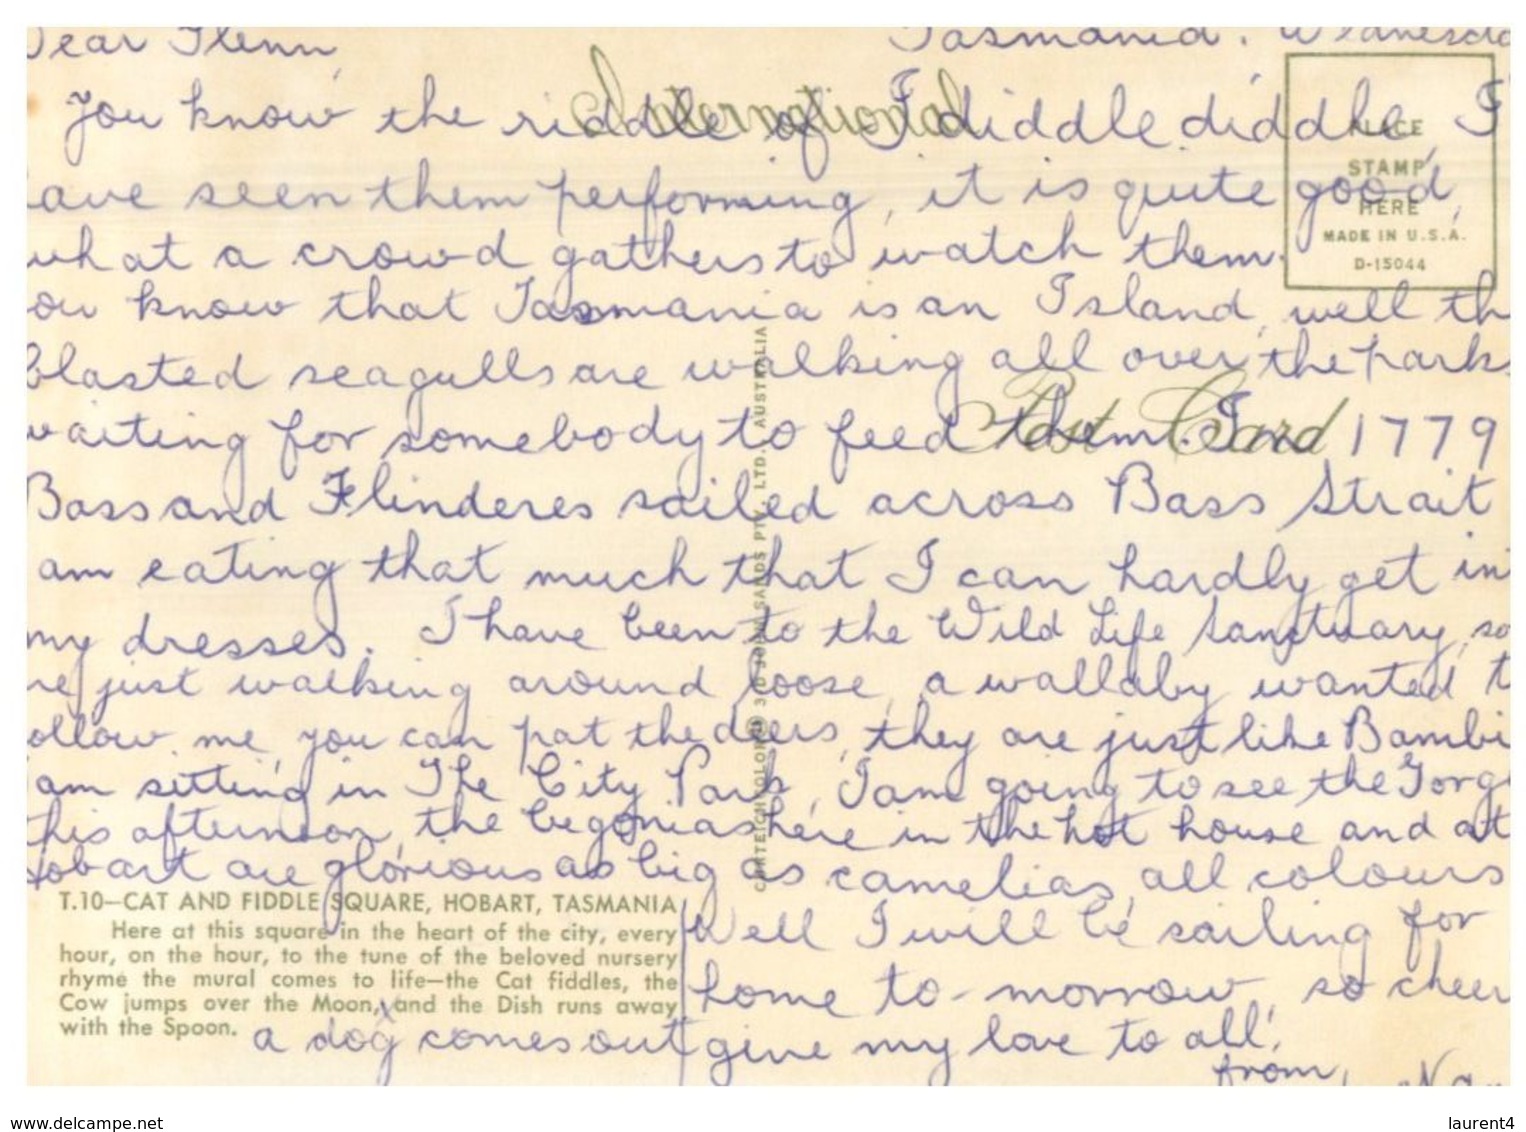 Dear Glenn, Tasmania. Wednesda
You know the riddle of I diddle diddle, I
ave seen them performing, it is quite good,
what a crowd gathers to watch them.
ou know that Tasmania is an Island, well th
blasted seagulls are walking all over the parks
waiting for somebody to feed them. In 1779
Bass and Flinderes sailed across Bass Strait
am eating that much that I can hardly get in
my dresses. I have been to the Wild Life Sanctuary, so
re just walking around loose, a wallaby wanted t
ollow me, you can pat the deers, they are just like Bambi
am sitting in The City Park, I am going to see the Gorg
this afternoon, the begonias here in the hot house and at
Hobart are glorious as big as camelias, all colours
Well I will be sailing for
home to-morrow, so cheer
give my love to all.
from, Na
a dog comes out
International
Post Card
PLACE
STAMP
HERE
MADE IN U.S.A.
D-15044
T.10—CAT AND FIDDLE SQUARE, HOBART, TASMANIA
Here at this square in the heart of the city, every
hour, on the hour, to the tune of the beloved nursery
rhyme the mural comes to life—the Cat fiddles, the
Cow jumps over the Moon, and the Dish runs away
with the Spoon.
SANDS PTY. LTD. AUSTRALIA
www.delcampe.net
laurent4